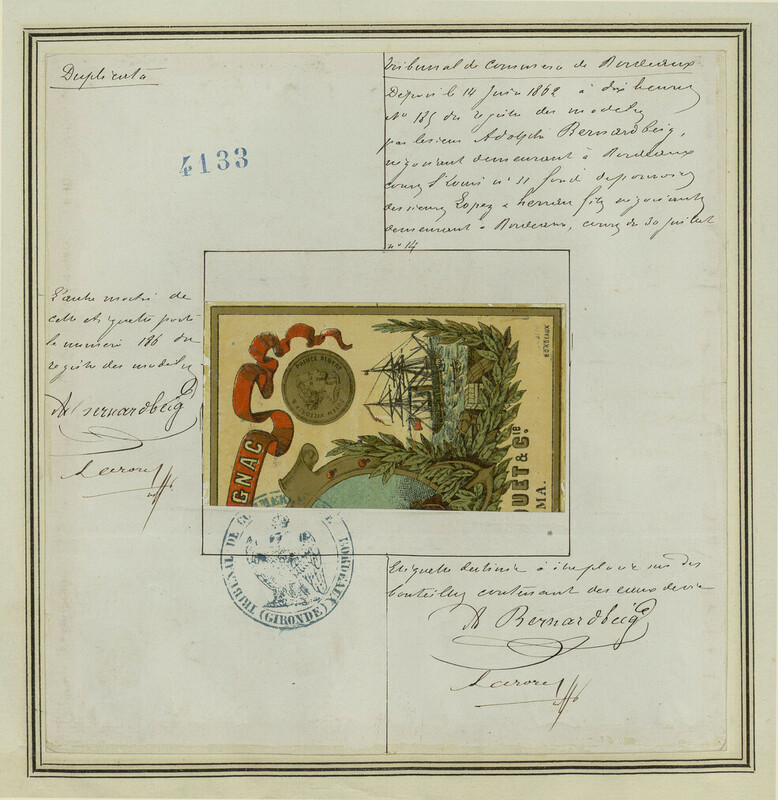 Duplicata
4133
Tribunal de Commerce de Bordeaux
Depose le 14 Juin 1862 à dix heures
N° 185 du registre des modeles
par le sieur Adolphe Bernardbeig,
négociant demeurant à Bordeaux
cours St Louis n° 11 fondé de pouvoirs
des sieurs Lopez & herran fils négociants
demeurant à Bordeaux, cours du 30 juillet
n° 14
L'autre moitié de
cette etiquette porte
le numero 186 du
registre des modeles
A Bernardbeig
GNAC
PRINCE ALBERT
BORDEAUX
QUET & Cie
MA.
TRIBUNAL DE COMMERCE DE BORDEAUX
(GIRONDE)
Etiquette destinée à être placée sur des
bouteilles contenant des eaux de vie
A Bernardbeig